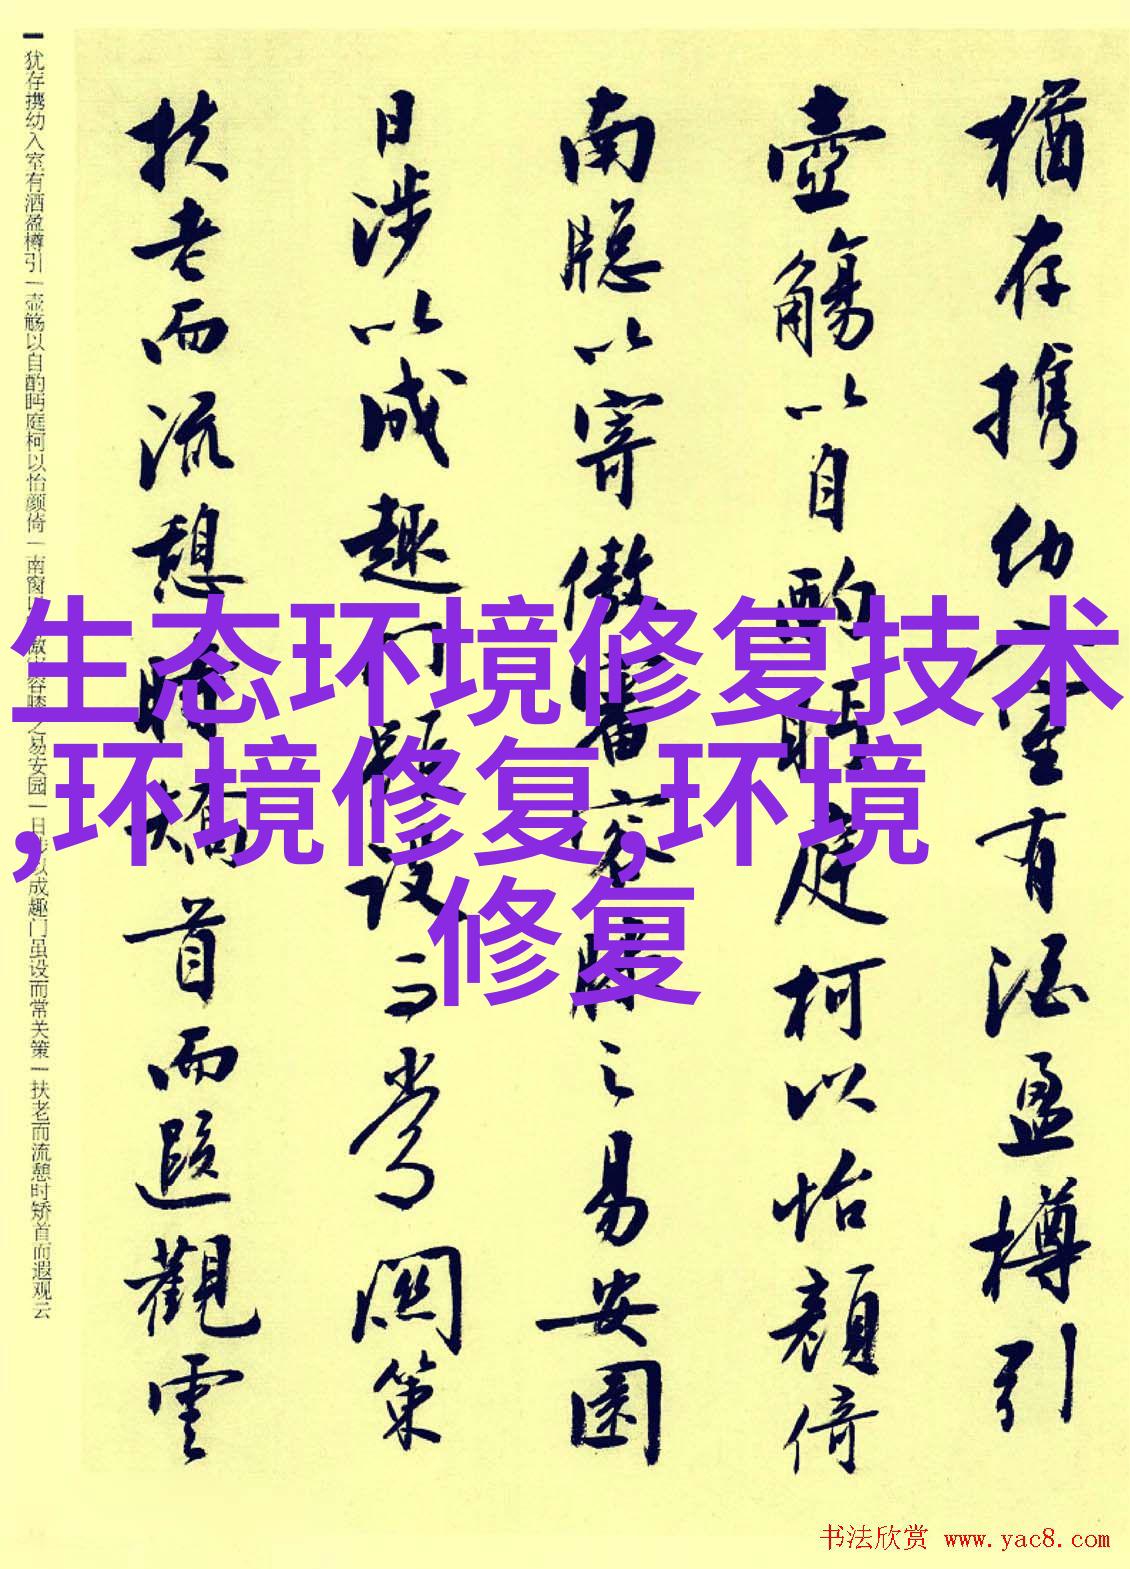 猶存携幼入室有酒盈樽引
壺觴以自酌眄庭柯以怡顏倚
南牕以寄傲審容膝之易安園
日涉以成趣门雖设而常関策
扶老而流憩時矯首而遐觀雲
犹存携幼入室有酒盈樽引|壶觞以自酌眄庭柯以怡颜倚|南窗傲容膝之易安园|日涉以成趣门虽设而常关策|扶老而流憩时矫首而遐观云
生态环境修复技术
,环境修复,环境
修复
书法欣赏 www.yac8.com